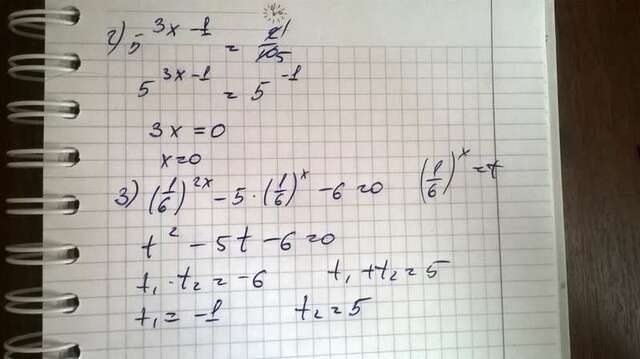 2) 5^(3x-1) = 21/105
5^(3x-1) = 5^(-1)
3x = 0
x = 0
3) (1/6)^(2x) - 5 · (1/6)^x - 6 = 0 (1/6)^x = t
t^2 - 5t - 6 = 0
t₁ · t₂ = -6 t₁ + t₂ = 5
t₁ = -1 t₂ = 5